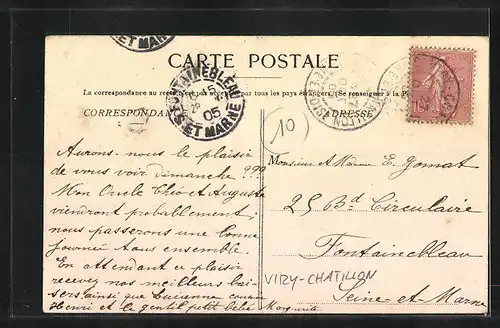 CARTE POSTALE
La correspondance au recto n'est pas acceptée par tous les pays étrangers (Se renseigner à la
CORRESPONDAN
ADRESSE
FONTAINEBLEAU
05
SEINE ET MARNE
ET MARNE
10
Aurons-nous le plaisir
de vous voir dimanche ???
Mon Oncle Théo et Augusta
viendront probablement,
nous passerons une bonne
journée tous ensemble.
En attendant ce plaisir
recevez nos meilleurs bai-
sers ainsi que Lucienne cousin
Henri et le gentil petit bébé
Marguerite
Monsieur et Madame E. Gomat
25 Bd Circulaire
Fontainebleau
VIRY-CHATILLON
Seine et Marne